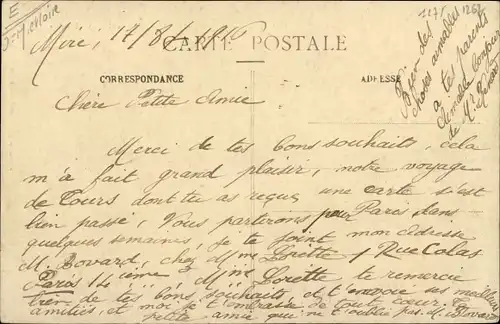 E
Miré, 17/8/
CARTE POSTALE
CORRESPONDANCE
ADRESSE
Chère Petite Amie
Merci de tes bons souhaits, cela
m'a fait grand plaisir, notre voyage
de Tours dont tu as reçue une carte s'est
bien passé, Vous partirons pour Paris dans
quelques semaines, je te joint mon adresse
M. Bovard, chez Mme Lorette 1 Rue Colas
Paris 14 ième Mme Lorette te remercie
bien de tes bons souhaits et t'envoie ses meilles
amitiés et moi je t'embrasse de tout cœur. Ta
petite amie qui ne t'oublie pas. M. Bovard
Bien des
choses aimables
à tes parents